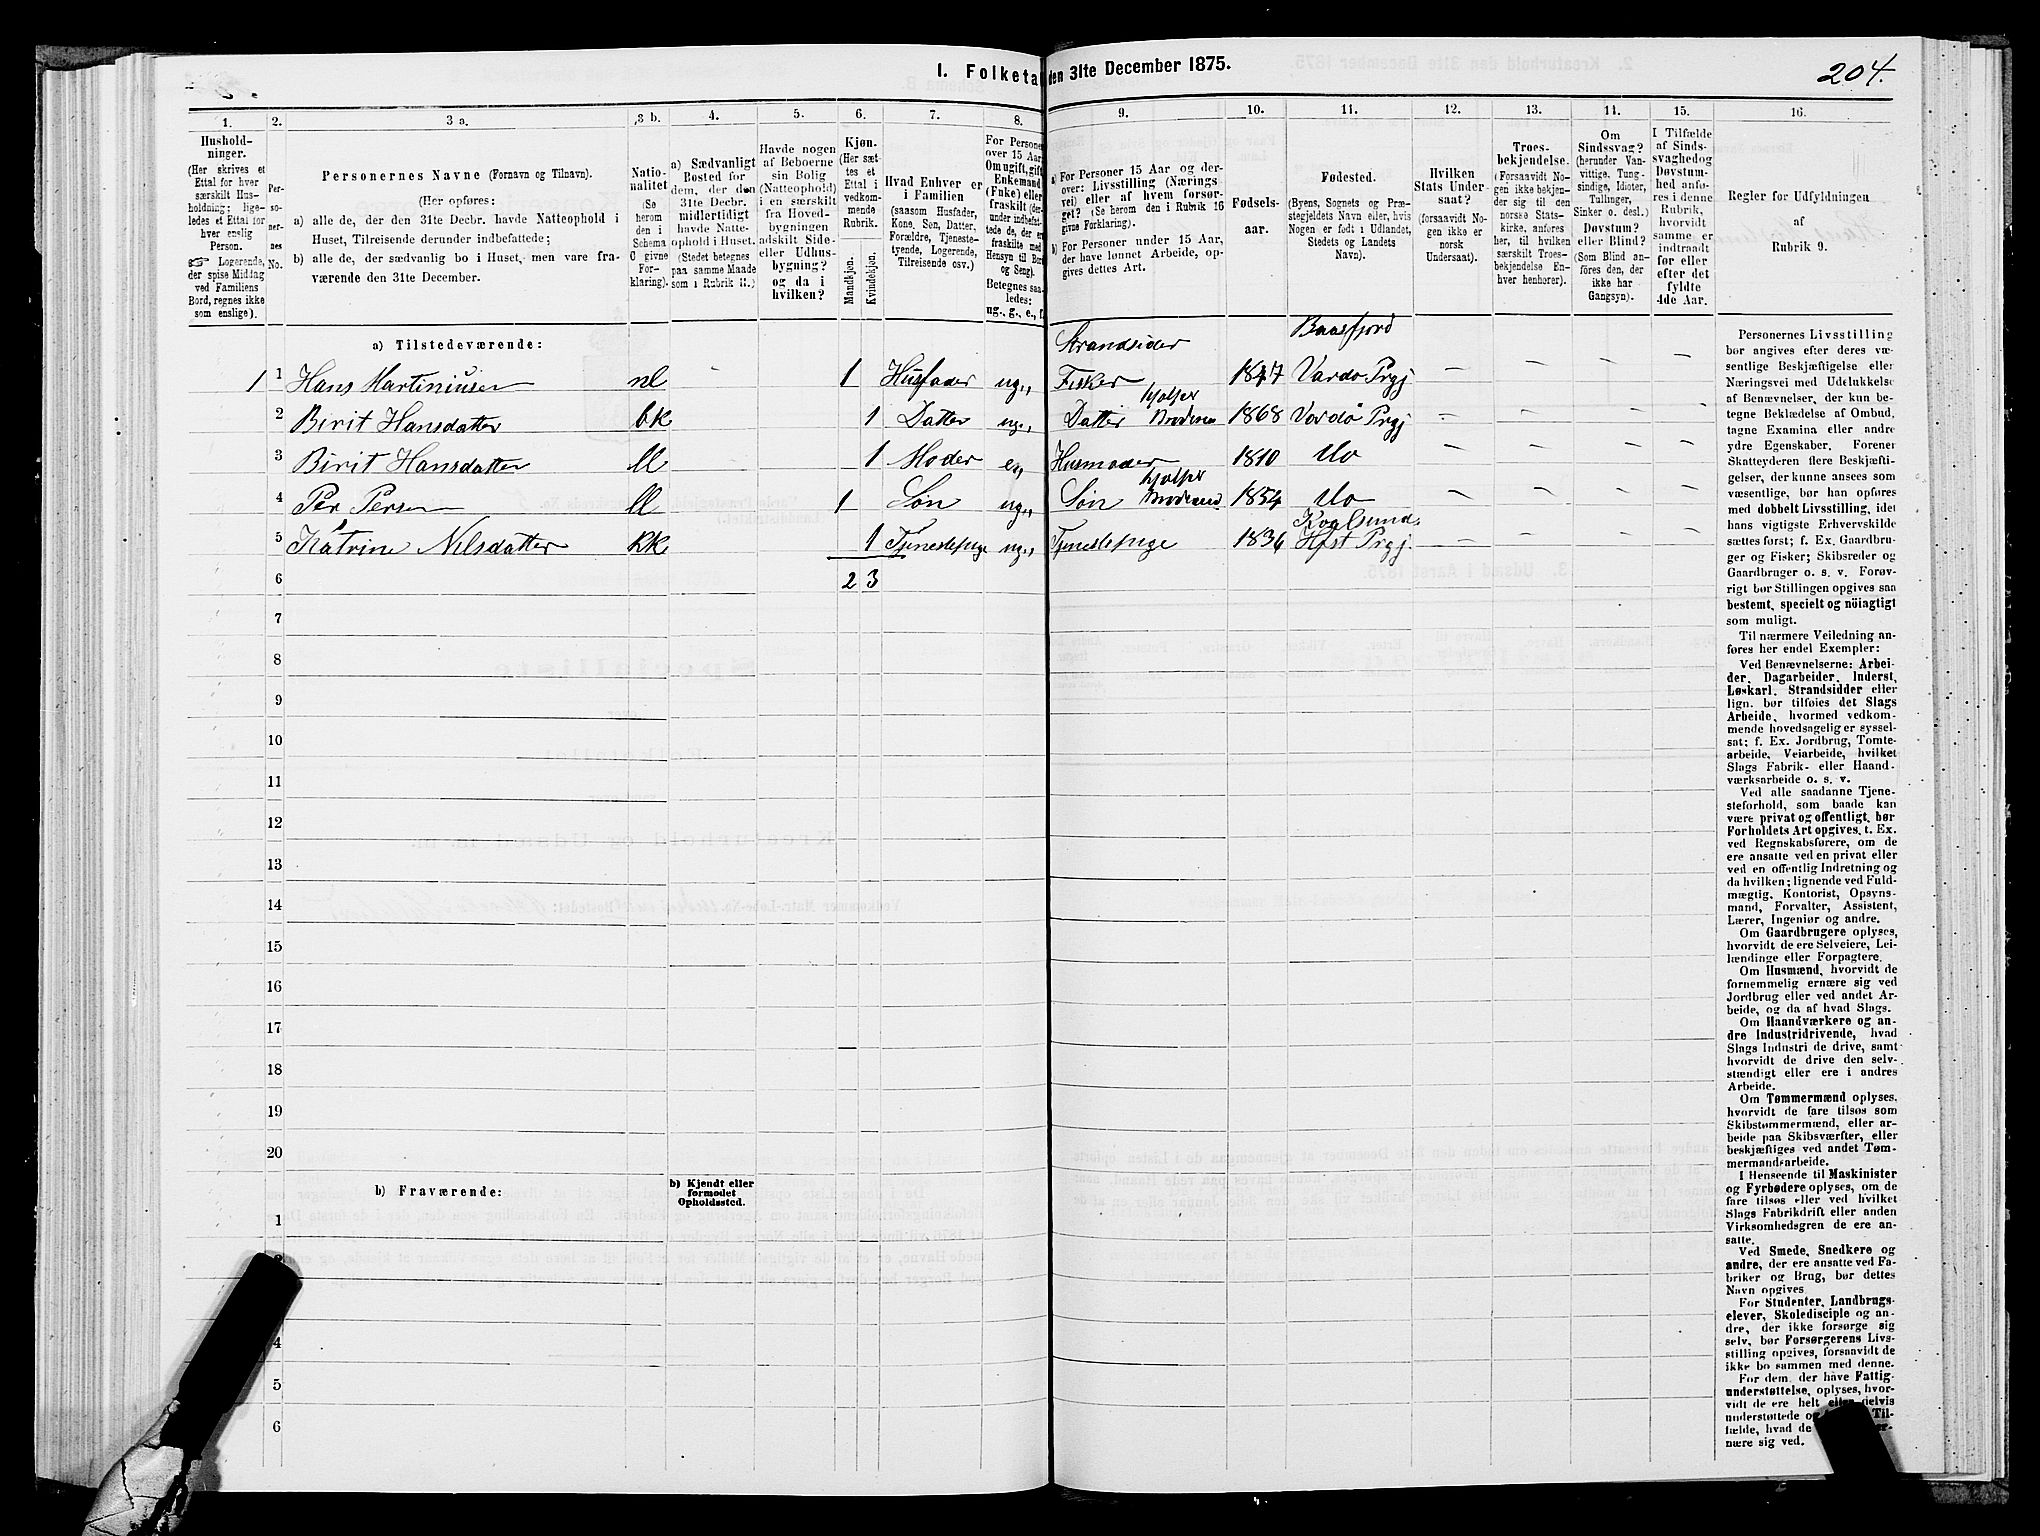 I. Folketal den 31te December 1875.
204.
1.
Hushold-
ninger.
(Her skrives et
Ettal for hver
særskilt Hus-
holdning; lige-
ledes et Ettal for
hver enslig
Person.
Logerende,
der spise Middag
ved Familiens
Bord, regnes ikke
som enslige).
2.
Per-
so-
ner-
nes
No.
3 a.
Personernes Navne (Fornavn og Tilnavn).
(Her opføres:
a) alle de, der den 31te Decbr. havde Natteophold i
Huset, Tilreisende derunder indbefattede;
b) alle de, der sædvanlig bo i Huset, men vare fra-
værende den 31te December.
3 b.
Natio-
nalitet
(Se
herom
den i
Schema
C givne
For-
klaring).
4.
a) Sædvanligt
Bosted for
dem, der den
31te Decbr.
midlertidigt
havde Natte-
ophold i Huset.
(Stedet betegnes
paa samme Maade
som i Rubrik 11.)
5.
Havde nogen
af Beboerne
sin Bolig
(Natteophold)
i en særskilt
fra Hoved-
bygningen
adskilt Side-
eller Udhus-
bygning?
og da i
hvilken?
6.
Kjøn.
(Her sæt-
tes et
Ettal i
vedkom-
mende
Rubrik.
Mandkjøn.
Kvindekjøn.
7.
Hvad Enhver er
i Familien
(saasom Husfader,
Kone, Søn, Datter,
Forældre, Tjeneste-
tyende, Logerende,
Tilreisende osv.)
8.
For Personer
over 15 Aar:
Om ugift, gift,
Enkemand
(Enke) eller
fraskilt (der-
under indbefat-
tede de, der ere
fraskilte med
Hensyn til Bord
og Seng).
Betegnes saa-
ledes:
ug., g., e., f.
9.
a) For Personer 15 Aar og der-
over: Livsstilling (Nærings-
vei) eller af hvem forsør-
get? (Se herom den i Rubrik 16
givne Forklaring).
b) For Personer under 15 Aar,
der have lønnet Arbeide, op-
gives dettes Art.
10.
Fødsels-
aar.
11.
Fødested.
(Byens, Sognets og Præ-
stegjeldets Navn eller, hvis
Nogen er født i Udlandet,
Stedets og Landets
Navn).
12.
Hvilken
Stats Under-
saat?
(forsaavidt No-
gen ikke er
norsk
Undersaat).
13.
Troes-
bekjendelse.
(Forsaavidt No-
gen ikke bekjen-
der sig til den
norske Stats-
kirke, anføres
her, til hvilken
særskilt Troes-
bekjendelse En-
hver henhører).
14.
Om
Sindssvag?
(herunder Van-
vittige, Tung-
sindige, Idioter,
Tullinger,
Sinker o. desl.)
Døvstum?
eller Blind?
(Som Blind an-
føres den, der
ikke har
Gangsyn).
15.
I Tilfælde
af Sinds-
svaghed og
Døvstum-
hed anfø-
res i denne
Rubrik,
hvorvidt
samme er
indtraadt
før eller
efter det
fyldte
4de Aar.
16.
Regler for Udfyldningen
af
Rubrik 9.
a) Tilstedeværende:
Strandsider Baasfjord
1 1 Hans Martiniusen nl - 1 Husfader ug., Fisker 1847 Vardø Prgj — — — —
hjælper
2 Berit Hansdatter bk 1 Datter ug., Datter Moderen 1868 Vardø Prgj — — — —
3 Berit Hansdatter ll 1 Moder e., Husmoder 1810 do — — — —
hjælper
4 Per Persen ll 1 Søn ug., Søn Moderen 1854 do — — — —
Kvalsund
5 Katrine Nilsdatter kk 1 Tjenestepige ug., Tjenestepige 1836 Hfst Prgj. — — — —
6 2 3
7
8
9
10
11
12
13
14
15
16
17
18
19
20
b) Fraværende:
b) Kjendt eller
formodet
Opholdssted.
1
4
5
6
Personernes Livsstilling
bør angives efter deres væ-
sentlige Beskjæftigelse eller
Næringsvei med Udelukkelse
af Benævnelser, der kun be-
tegne Beklædelse af Ombud,
tagne Examina eller andre
ydre Egenskaber. Forener
Skatteyderen flere Beskjæfti-
gelser, der kunne ansees som
væsentlige, bør han opføres
med dobbelt Livsstilling, idet
hans vigtigste Erhvervskilde
sættes først; f. Ex. Gaardbru-
ger og Fisker; Skibsreder og
Gaardbruger o. s. v. Forøv-
rigt bør Stillingen opgives saa
bestemt, specielt og nöiagtigt
som muligt.
Til nærmere Veiledning an-
føres her endel Exempler:
Ved Benævnelserne: Arbei-
der, Dagarbeider, Inderst,
Løskarl, Strandsidder eller
lign. bør tilføies det Slags
Arbeide, hvormed vedkom-
mende hovedsagelig er syssel-
sat; f. Ex. Jordbrug, Tomte-
arbeide, Veiarbeide, hvilket
Slags Fabrik- eller Haand-
værksarbeide o. s. v.
Ved alle saadanne Tjene-
steforhold, som baade kan
være privat og offentligt, bør
Forholdets Art opgives, t. Ex.
ved Regnskabsførere, om de
ere ansatte ved en privat eller
ved en offentlig Indretning og
da hvilken; lignende ved Fuld-
mægtig, Kontorist, Opsyns-
mand, Forvalter, Assistent,
Lærer, Ingeniør og andre.
Om Gaardbrugere oplyses,
hvorvidt de ere Selveiere, Lei-
lændinge eller Forpagtere.
Om Husmænd, hvorvidt de
fornemmelig ernære sig ved
Jordbrug eller ved andet Ar-
beide, og da af hvad Slags.
Om Haandværkere og an-
dre Industridrivende, hvad
Slags Industri de drive, samt
hvorvidt de drive den selv-
stændigt eller ere i andres
Arbeide.
Om Tømmermænd oplyses,
hvorvidt de fare tilsøs som
Skibstømmermænd, eller ar-
beide paa Skibsværfter, eller
beskjæftiges ved andet Tøm-
mermandsarbeide.
I Henseende til Maskinister
og Fyrbødere oplyses, om de
fare tilsøs eller ved hvilket
Slags Fabrikdrift eller anden
Virksomhedsgren de ere an-
satte.
Ved Smede, Snedkere og
andre, der ere ansatte ved Fa-
briker og Brug, bør dettes
Navn opgives.
For Studenter, Landbrugs-
elever, Skoledisciple og an-
dre, der ikke forsørge sig
selv, bør Forsørgerens Livs-
stilling opgives, forsaavidt de
ikke bo sammen med denne.
For dem, der have Fattig-
understøttelse, oplyses, hvor-
vidt de ere helt eller delvis
understøttede og i Til-
fælde, hvad de er-
nære sig ved.